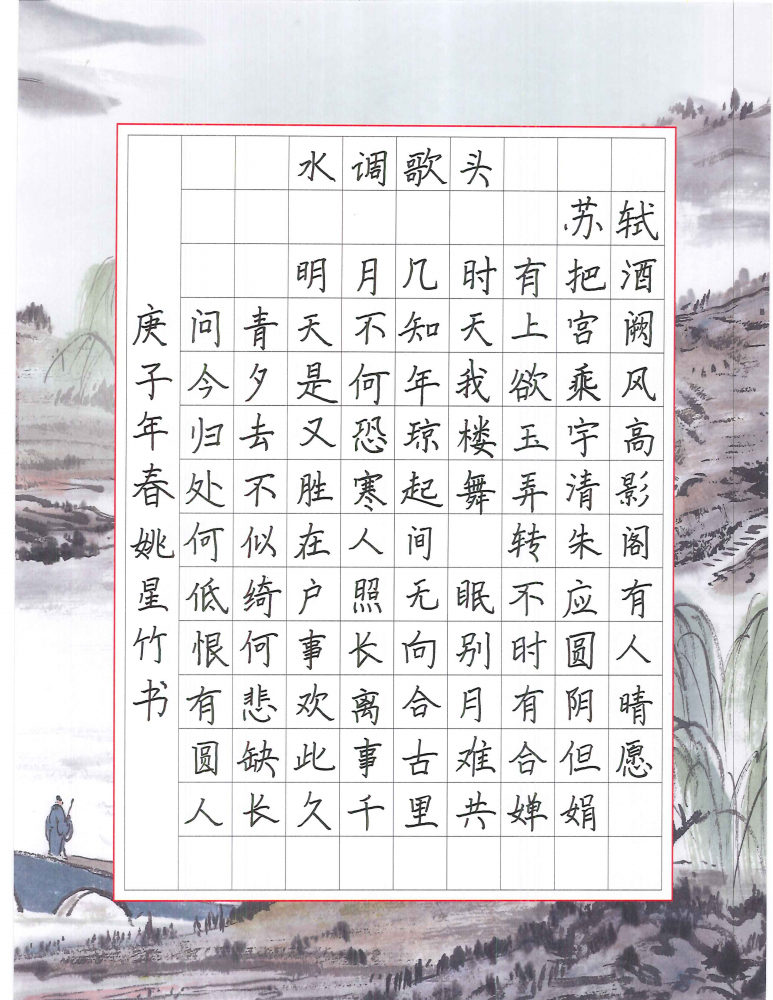 水调歌头
苏轼
明月几时有把酒
问青天不知天上宫阙
今夕是何年我欲乘风
归去又恐琼楼玉宇高
处不胜寒起舞弄清影
何似在人间 转朱阁
低绮户照无眠不应有
恨何事长向别时圆人
有悲欢离合月有阴晴
圆缺此事古难合但愿
人长久千里共婵娟
庚子年春姚星竹书